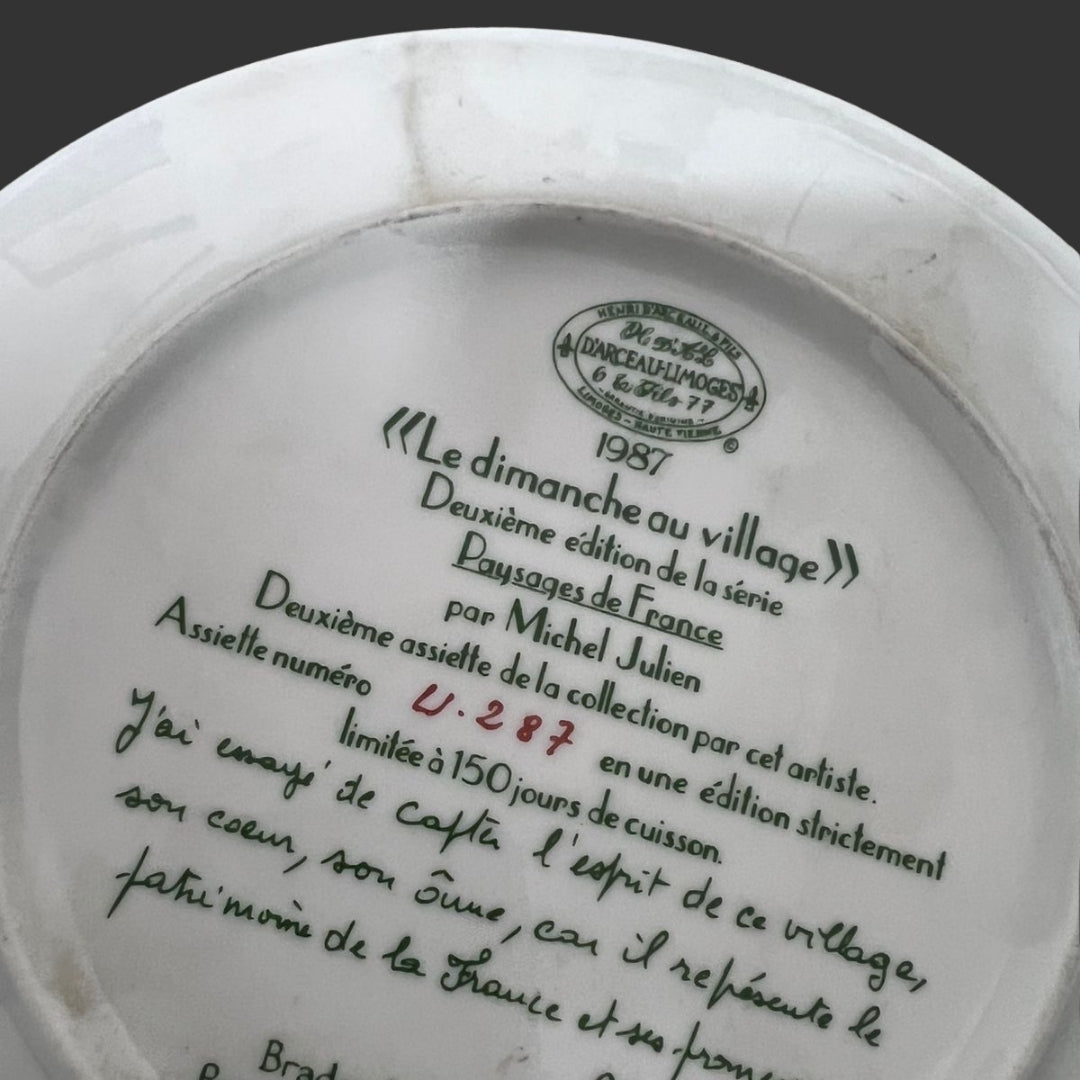 HENRI D'ARCEAU & FILS
D'ARCEAU-LIMOGES
6 & Fils 77
GARANTIE D'ORIGINE
LIMOGES - HAUTE VIENNE
©
1987
«Le dimanche au village»
Deuxième édition de la série
Paysages de France
par Michel Julien
Deuxième assiette de la collection par cet artiste.
Assiette numéro U.287 en une édition strictement
limitée à 150 jours de cuisson.
J'ai essayé de capter l'esprit de ce village,
son coeur, son âme, car il représente le
patrimoine de la France et ses
Brad